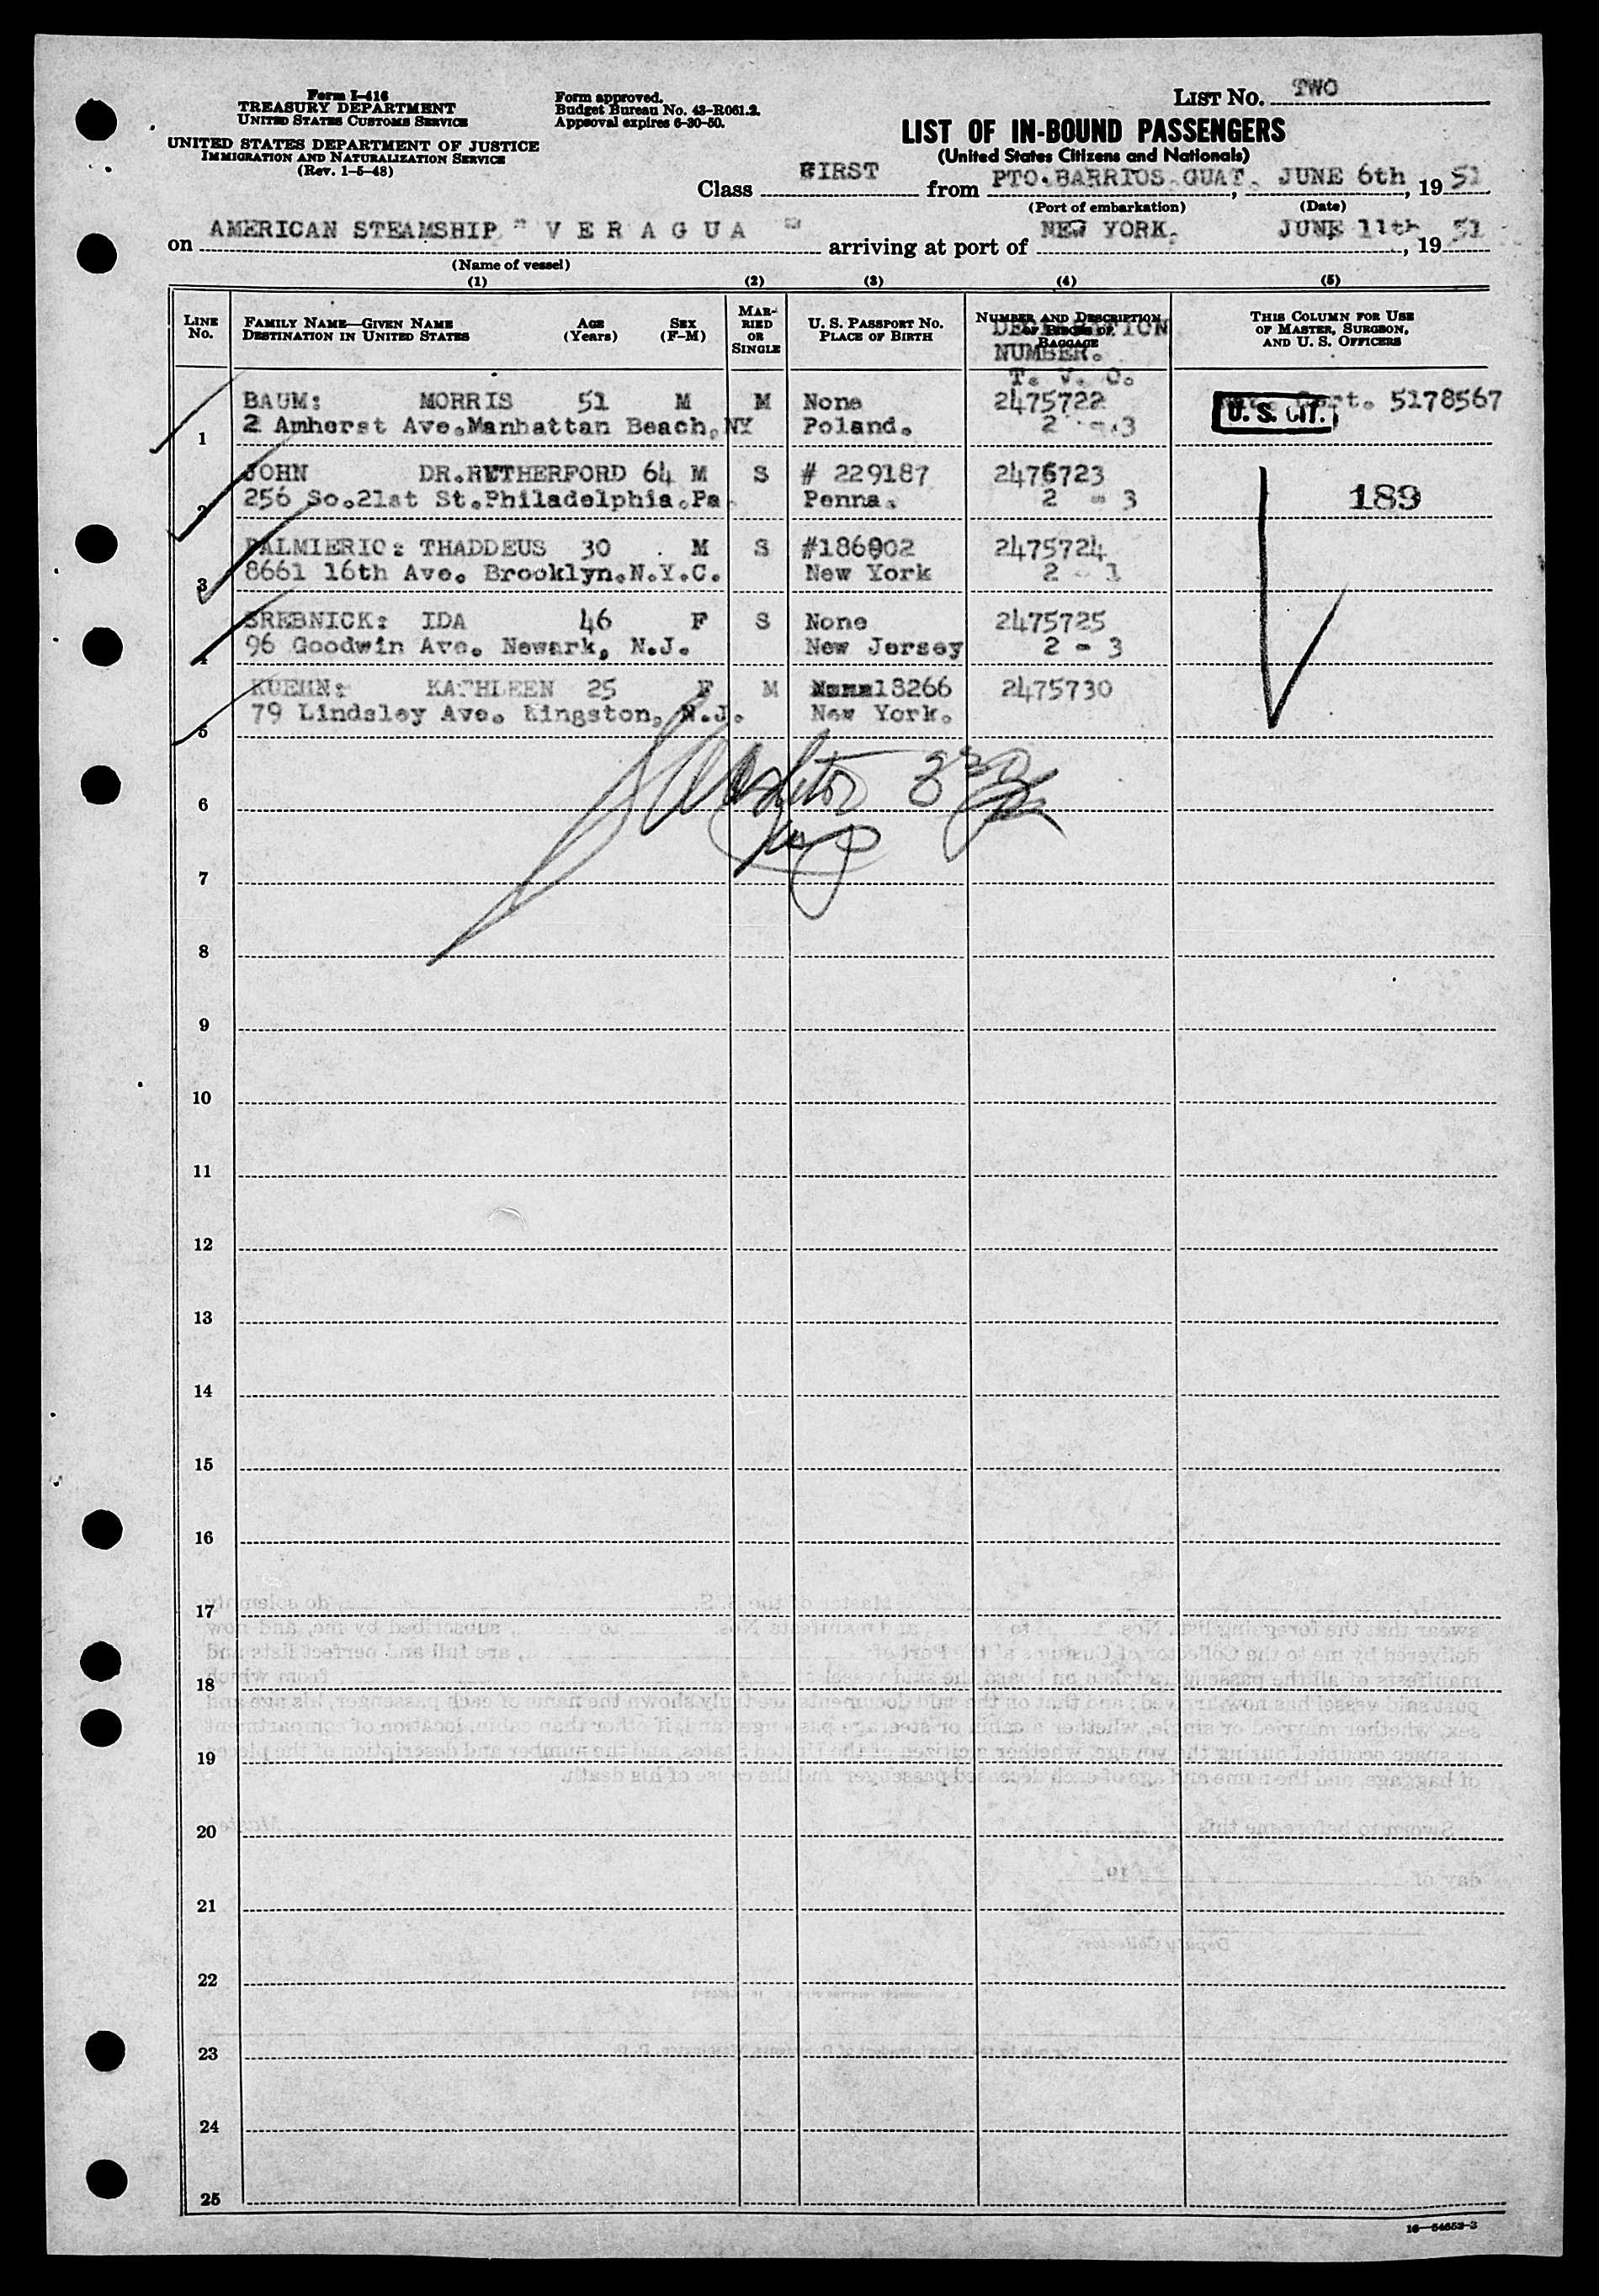 Form I-416
TREASURY DEPARTMENT
UNITED STATES CUSTOMS SERVICE
UNITED STATES DEPARTMENT OF JUSTICE
IMMIGRATION AND NATURALIZATION SERVICE
(Rev. 1-5-48)
Form approved.
Budget Bureau No. 43-R061.2.
Approval expires 6-30-50.
LIST NO. TWO
LIST OF IN-BOUND PASSENGERS
(United States Citizens and Nationals)
Class FIRST from PTO.BARRIOS GUAT., JUNE 6th, 1951
(Port of embarkation) (Date)
on AMERICAN STEAMSHIP " V E R A G U A " arriving at port of NEW YORK. JUNE 11th, 1951
(Name of vessel)
(1) (2) (3) (4) (5)
LINE NO.
FAMILY NAME—GIVEN NAME
DESTINATION IN UNITED STATES
AGE (Years)
SEX (F-M)
MARRIED OR SINGLE
U. S. PASSPORT NO.
PLACE OF BIRTH
NUMBER AND DESCRIPTION OF PIECES OF BAGGAGE
NUMBER.
THIS COLUMN FOR USE OF MASTER, SURGEON, AND U. S. OFFICERS
1 BAUM: MORRIS 51 M M None 2475722 Cert. 5178567
U. S. CIT.
2 Amherst Ave.Manhattan Beach,NY Poland. 2 - 3
2 JOHN DR.RETHERFORD 64 M S # 229187 2476723
256 So.21st St.Philadelphia.Pa. Penna. 2 - 3 189
3 PALMIERIC: THADDEUS 30 M S #186902 2475724
8661 16th Ave. Brooklyn.N.Y.C. New York 2 - 1
4 SREBNICK: IDA 46 F S None 2475725
96 Goodwin Ave. Newark, N.J. New Jersey 2 - 3
5 KUEHN: KATHLEEN 25 F M 18266 2475730
79 Lindsley Ave. Kingston, N.J. New York.
6
7
8
9
10
11
12
13
14
15
16
17
18
19
20
21
22
23
24
25
16—54652-3